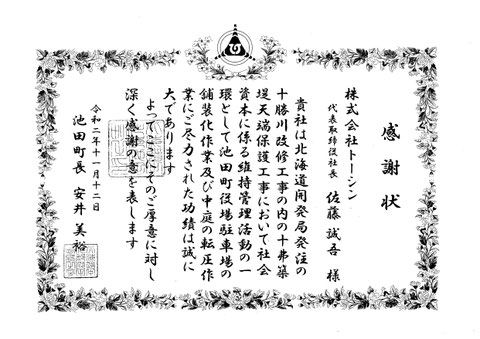 感謝状
株式会社トーシン
代表取締役社長 佐藤誠吾 様
貴社は北海道開発局発注の
十勝川改修工事の内の十弗築
堤天端保護工事において社会
資本に係る維持管理活動の一
環として池田町役場駐車場の
舗装化作業及び中庭の転圧作
業にご尽力された功績は誠に
大であります
よってここにそのご厚意に対し
深く感謝の意を表します
令和二年十一月十二日
池田町長 安井美裕